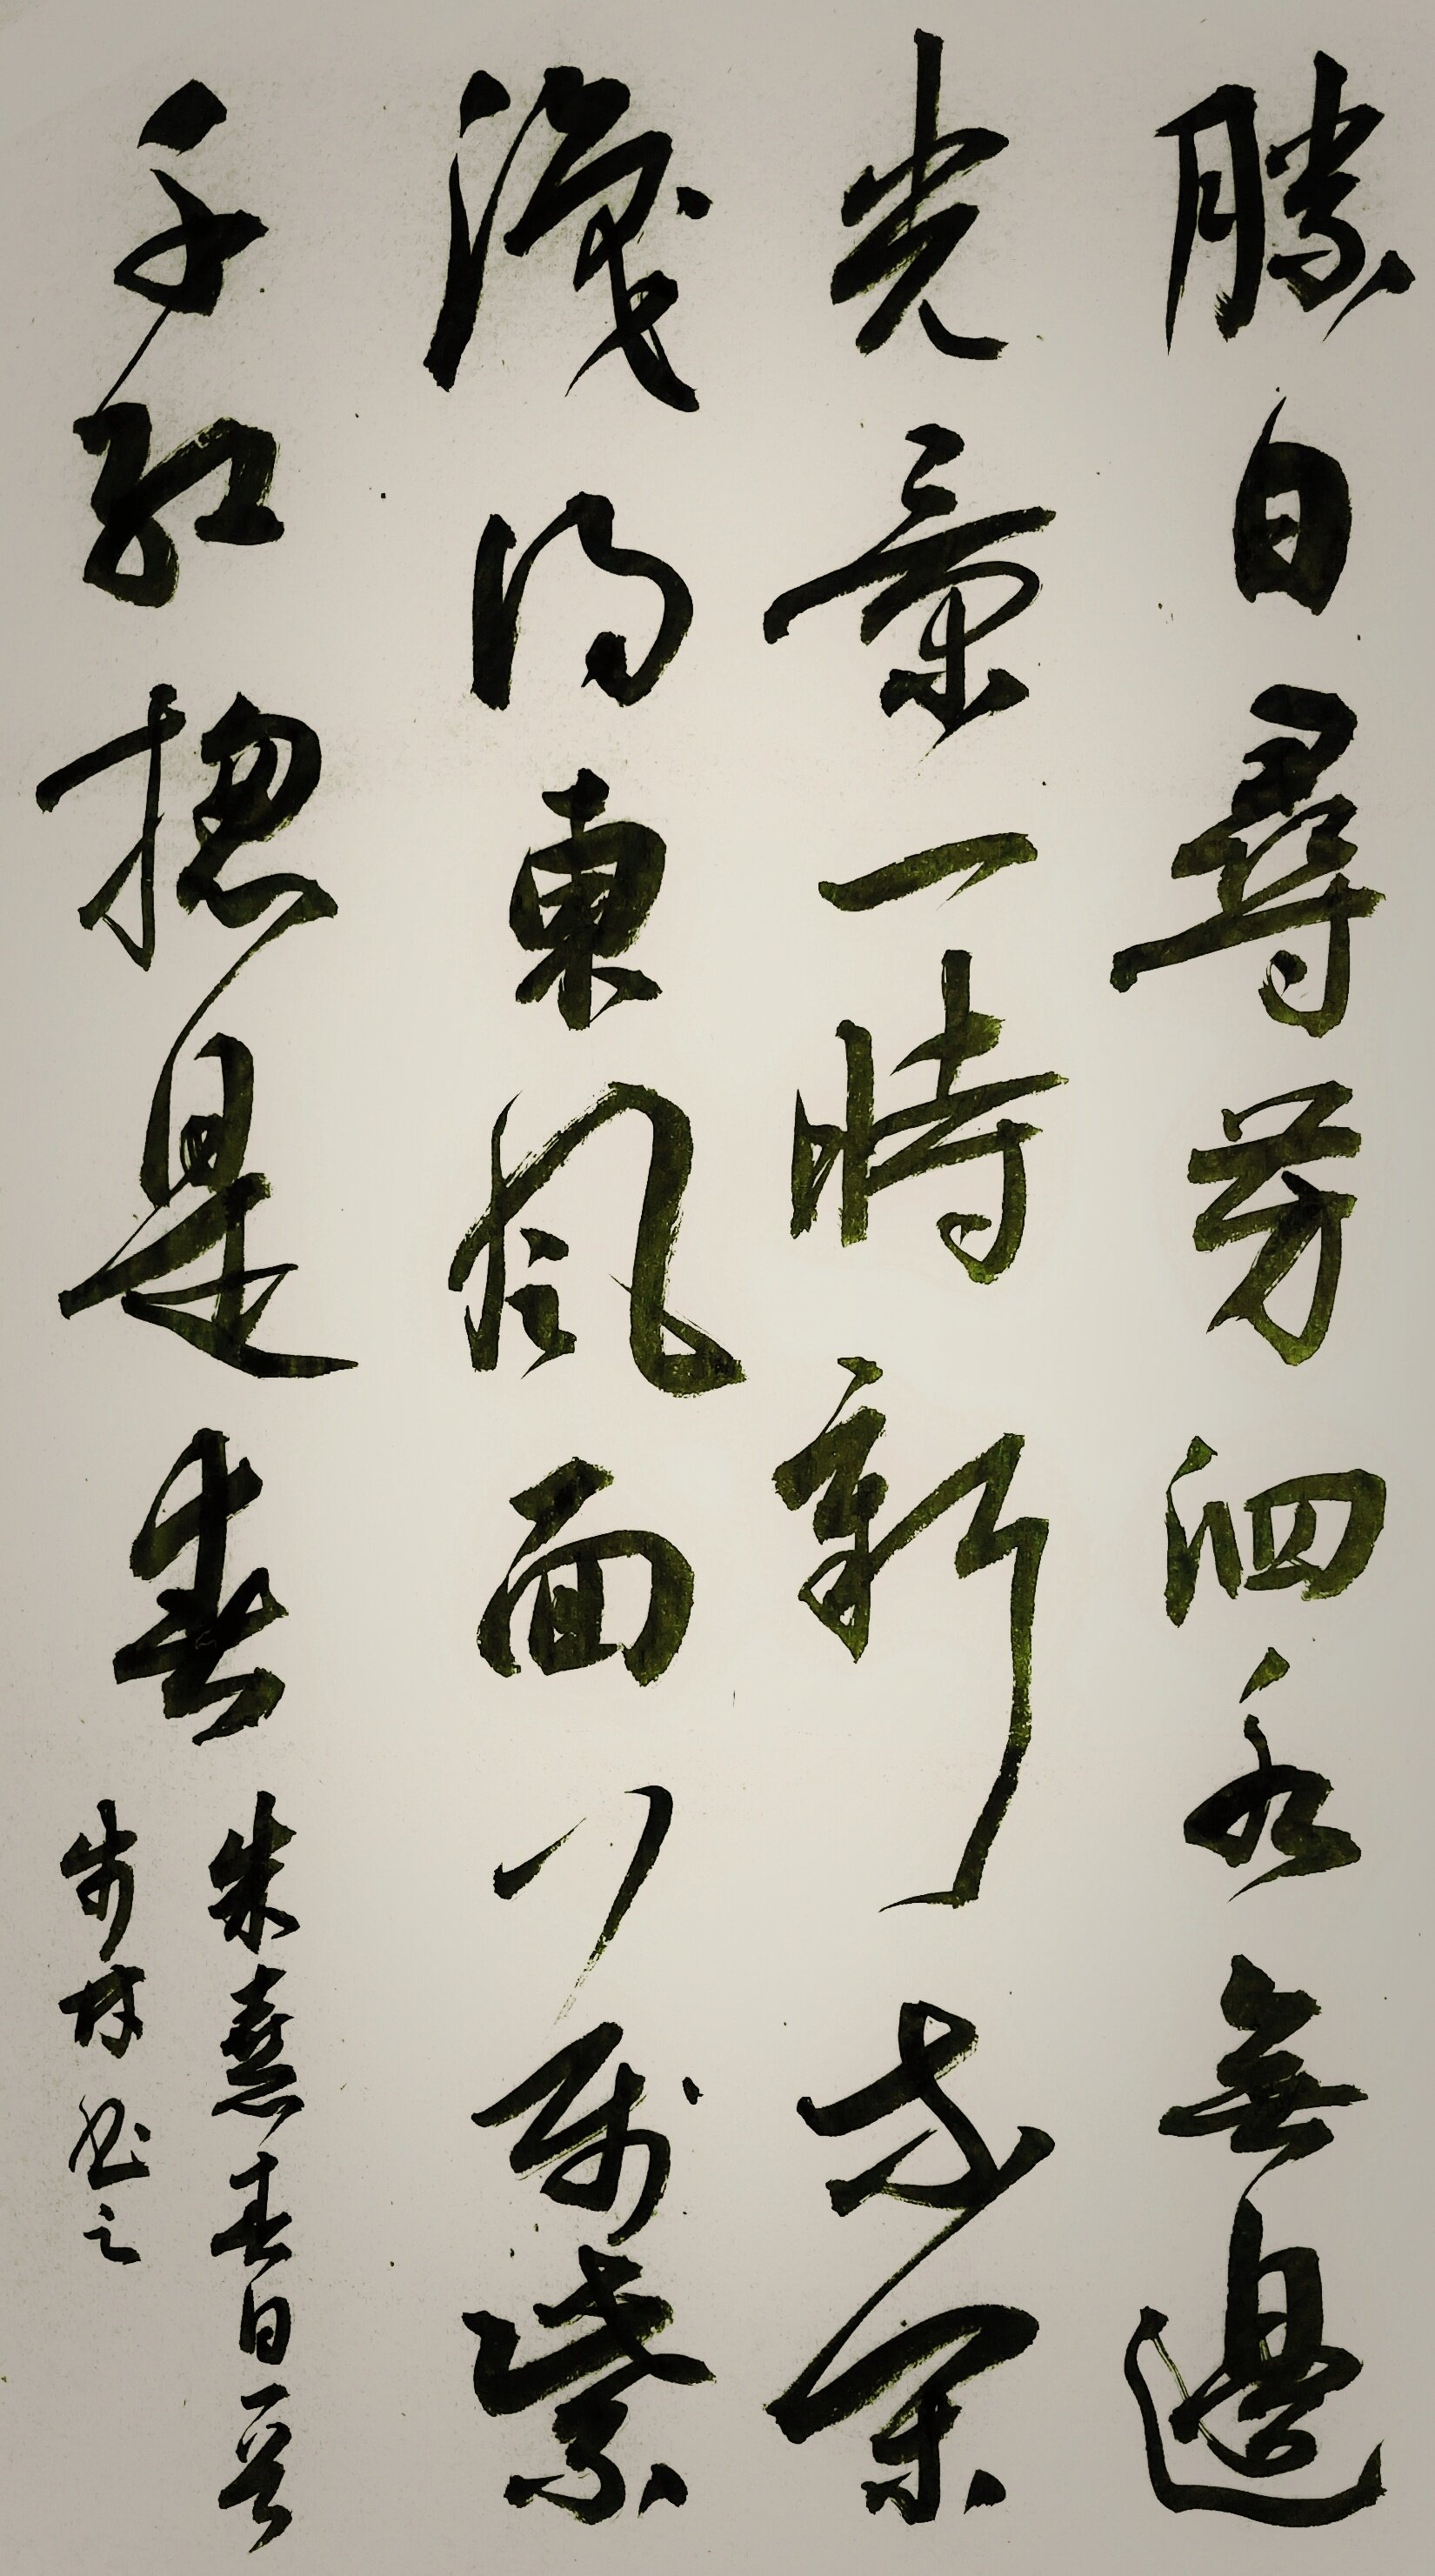 勝日尋芳泗水無邊
光景一時新等閑
識得東風面萬紫
千紅摠是春
朱熹春日一首
步林之